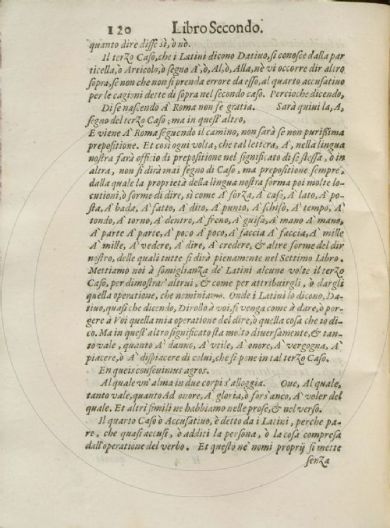 120 Libro Secondo.
quanto dire disse sì, ò nò.
Il terzo Caso, che i Latini dicono Datiuo, si conosce dalla par
ticella, ò Articolo, ò segno A', ò, Al, ò, Alla, nè vi occorre dir altro
sopra, se non che non si prenda errore da esso, al quarto accusatiuo
per le cagioni dette di sopra nel secondo caso. Percioche dicendo,
Di se nascendo A' Roma non fe gratia. Sarà quini la, A,
segno del terzo Caso; ma in quest'altro.
E viene A' Roma seguendo il camino, non sarà se non purissima
prepositione. Et così ogni volta, che tal lettera, A', nella lingua
nostra farà officio di prepositione nel significato di se stessa, ò in
altra, non si dirà mai segno di Caso, ma prepositione sempre,
dalla quale la proprietà della lingua nostra forma poi molte lo-
cutioni, ò forme di dire, sì come A' forza, A' caso, A' lato, A' po-
sta, A' bada, A' fatto, A' dito, A' punto, A' schifo, A' tempo, A'
tondo, A' torno, A' dentro, A' freno, A' guisa, A' mano A' mano,
A' parte A' parte, A' poco A' poco, A' faccia A' faccia, A' mille
A' mille, A' vedere, A' dire, A' credere, & altre forme del dir
nostro, delle quali tutte si dirà pienamente nel Settimo Libro.
Mettiamo noi à somiglianza de' Latini alcune volte il terzo
Caso, per dimostrar' altrui, & come per attribuirgli, ò dargli
quella operatione, che nominiamo. Onde i Latini lo dicono, Da-
tiuo, quasi che dicendo, Dirollo à voi, si venga come à dare, ò por-
gere à Voi quella mia operatione del dire, ò quella cosa che io di-
co. Ma in quest'altro significato sta molto diuersamente, & tan-
to vale, quanto A' danno, A' vtile, A' onore, A' vergogna, A'
piacere, ò A' dispiacere di colui, che si pone in tal terzo Caso.
En queis conseuimus agros.
Al quale vn'alma in due corpi s'alloggia. Oue, Al quale,
tanto vale, quanto Ad onore, A' gloria, ò fors'anco, A' voler del
quale. Et altri simili ne habbiamo nelle prose, & nel verso.
Il quarto Caso ò Accusatiuo, è detto da i Latini, perche pa-
re, che quasi accusi, ò additi la persona, ò la cosa compresa
dall'operatione del verbo. Et questo ne' nomi proprij si mette
senza